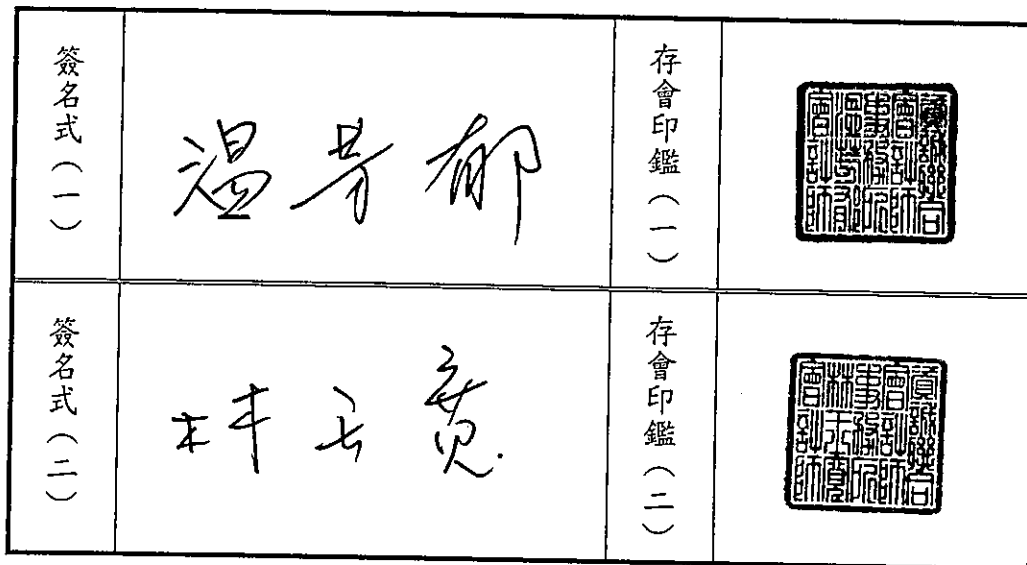 簽名式（一）
温芳郁
存會印鑑（一）
資誠聯合
會計師
事務所
溫芳郁
會計師
簽名式（二）
林玉寬
存會印鑑（二）
資誠聯合
會計師
事務所
林玉寬
會計師